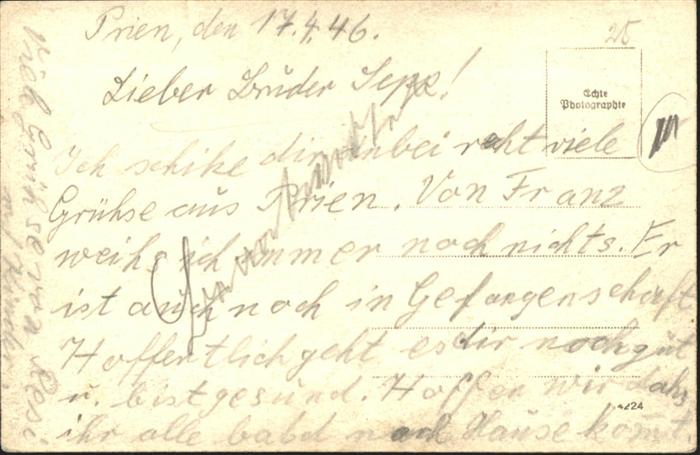 Prien, den 17.4.46.
25
Lieber Bruder Sepp!
Echte
Photographie
Ich schike dir anbei recht viele
Grühse aus Prien. Von Franz
weihs ich immer noch nichts. Er
ist auch noch in Gefangenschaft
Hoffentlich geht es dir noch gut
u. bist gesund. Hoffen wir dahs
ihr alle babd nach Hause komt.
4224
Viele Grühse von Resi